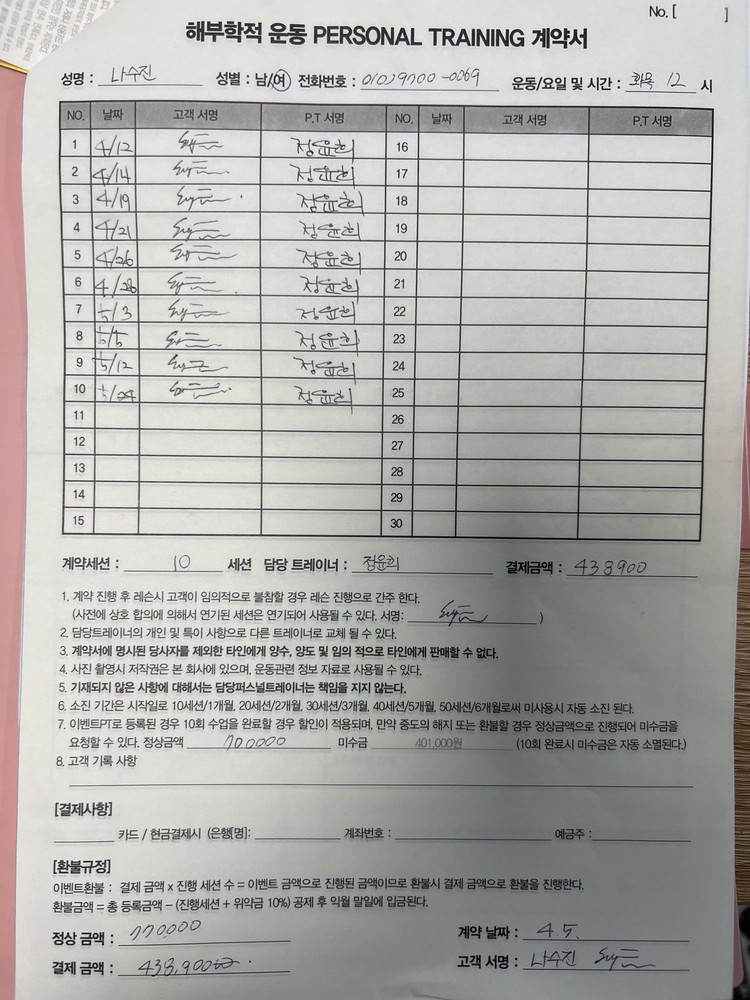 No. [ ]
해부학적 운동 PERSONAL TRAINING 계약서
성명 : 나수진 성별 : 남/여 전화번호 : 010)9700-0069 운동/요일 및 시간 : 화목 12 시
NO. 날짜 고객 서명 P.T 서명 NO. 날짜 고객 서명 P.T 서명
1 4/12 정윤희 16
2 4/14 정윤희 17
3 4/19 정윤희 18
4 4/21 정윤희 19
5 4/26 정윤희 20
6 4/28 정윤희 21
7 5/3 정윤희 22
8 5/5 정윤희 23
9 5/12 정윤희 24
10 5/24 정윤희 25
11 26
12 27
13 28
14 29
15 30
계약세션 : 10 세션 담당 트레이너 : 정윤희 결제금액 : 438900
1. 계약 진행 후 레슨시 고객이 임의적으로 불참할 경우 레슨 진행으로 간주 한다.
(사전에 상호 합의에 의해서 연기된 세션은 연기되어 사용될 수 있다. 서명: )
2. 담당트레이너의 개인 및 특이 사항으로 다른 트레이너로 교체 될 수 있다.
3. 계약서에 명시된 당사자를 제외한 타인에게 양수, 양도 및 임의 적으로 타인에게 판매할 수 없다.
4. 사진 촬영시 저작권은 본 회사에 있으며, 운동관련 정보 자료로 사용될 수 있다.
5. 기재되지 않은 사항에 대해서는 담당퍼스널트레이너는 책임을 지지 않는다.
6. 소진 기간은 시작일로 10세션/1개월, 20세션/2개월, 30세션/3개월, 40세션/5개월, 50세션/6개월로써 미사용시 자동 소진 된다.
7. 이벤트PT로 등록된 경우 10회 수업을 완료할 경우 할인이 적용되며, 만약 중도의 해지 또는 환불할 경우 정상금액으로 진행되어 미수금을
요청할 수 있다. 정상금액 700000 미수금 401,000원 (10회 완료시 미수금은 자동 소멸된다.)
8. 고객 기록 사항
[결제사항]
카드 / 현금결제시 (은행명): 계좌번호 : 예금주 :
[환불규정]
이벤트환불 : 결제 금액 x 진행 세션 수 = 이벤트 금액으로 진행된 금액이므로 환불시 결제 금액으로 환불을 진행한다.
환불금액 = 총 등록금액 – (진행세션 + 위약금 10%) 공제 후 익월 말일에 입금된다.
정상 금액 : 770000 계약 날짜 : 4.5.
결제 금액 : 438,900 고객 서명 : 나수진